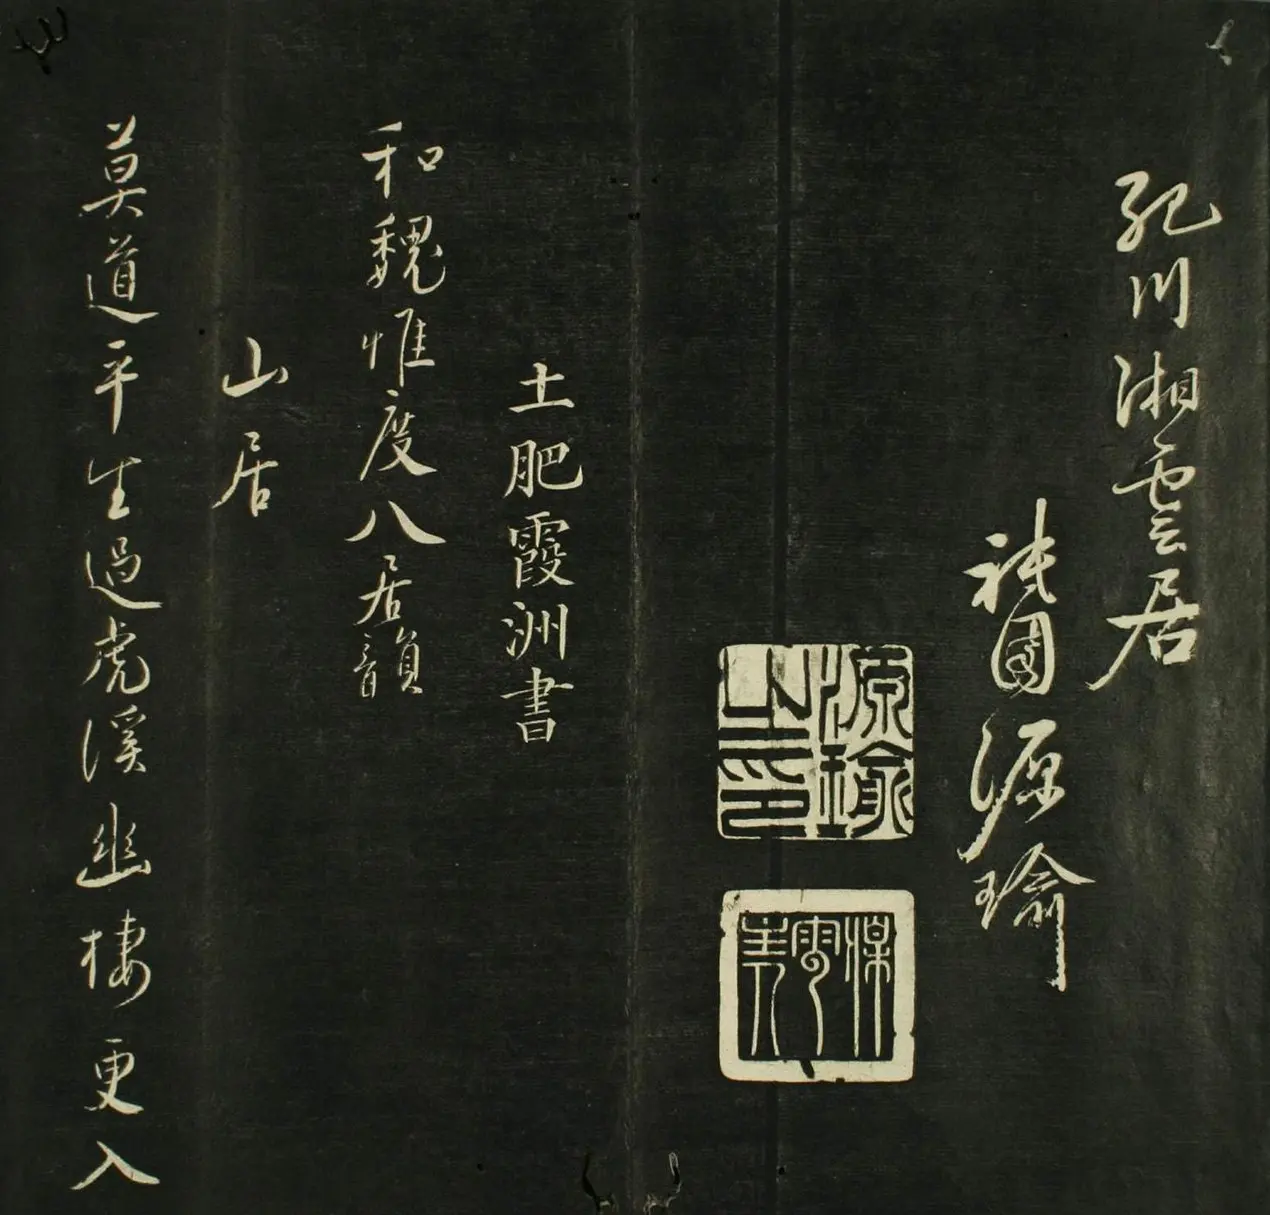 川湘雲居
祇園源瑜
源瑜之印
土肥霞洲書
和魏惟度八居韻
山居
莫道平生過虎溪幽棲更入